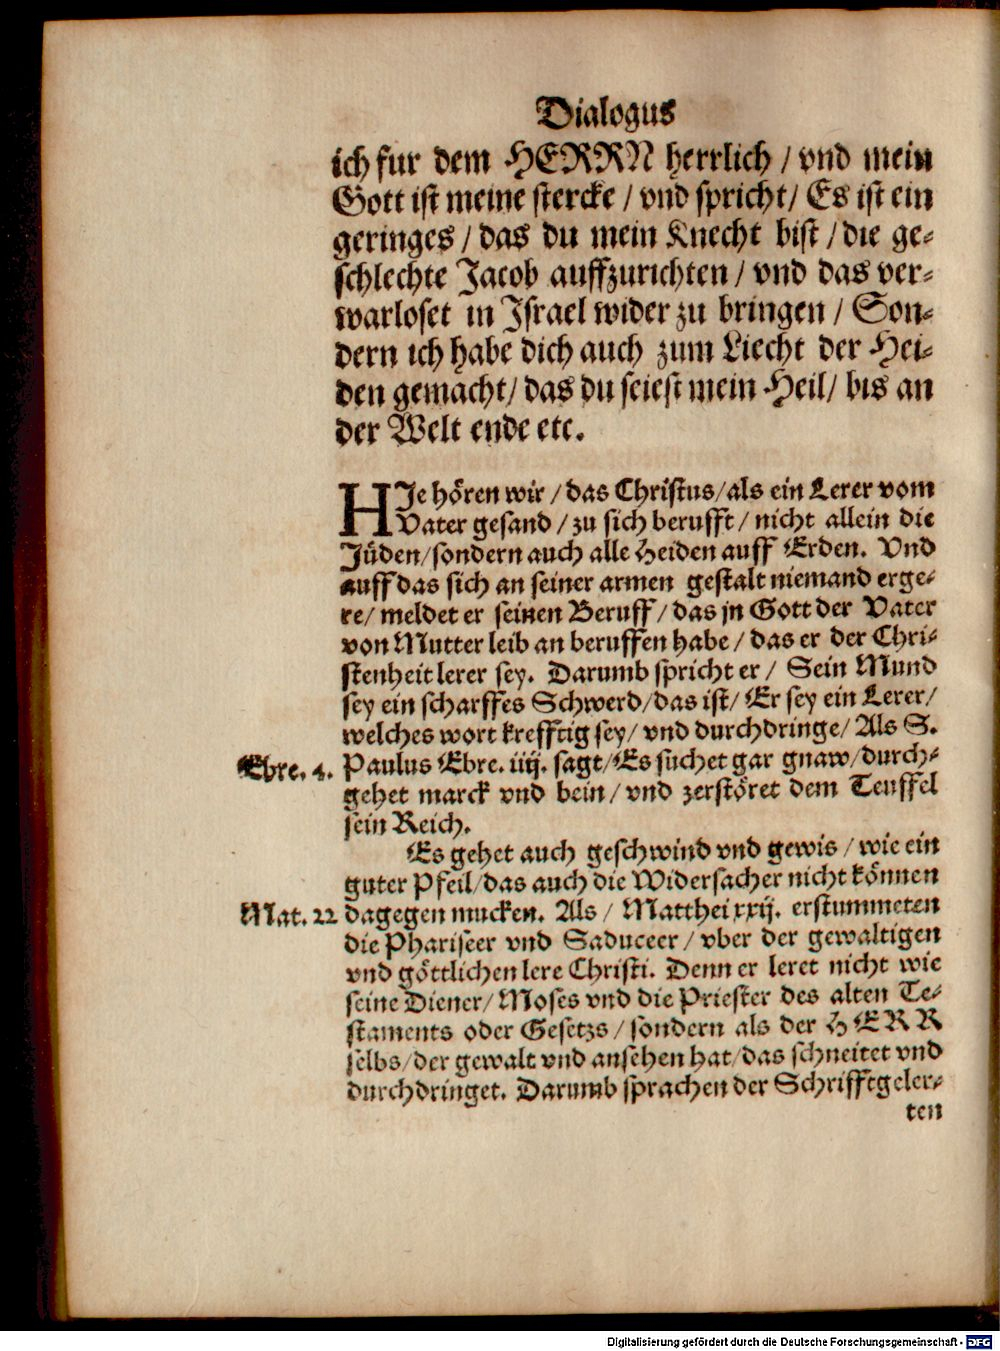 Dialogus
ich fur dem HERRN herrlich / vnd mein
Gott ist meine stercke / vnd spricht / Es ist ein
geringes / das du mein Knecht bist / die ge-
schlechte Jacob auffzurichten / vnd das ver-
warloset in Israel wider zu bringen / Son-
dern ich habe dich auch zum Liecht der Hei-
den gemacht / das du seiest mein Heil / bis an
der Welt ende etc.
HJe hören wir / das Christus / als ein Lerer vom
Vater gesand / zu sich berufft / nicht allein die
Jüden / sondern auch alle Heiden auff Erden. Vnd
auff das sich an seiner armen gestalt niemand erge-
re / meldet er seinen Beruff / das jn Gott der Vater
von Mutter leib an beruffen habe / das er der Chri-
stenheit lerer sey. Darumb spricht er / Sein Mund
sey ein scharffes Schwerd / das ist / Er sey ein Lerer /
welches wort krefftig sey / vnd durchdringe / Als S.
Ebre. 4. Paulus Ebre. iiij. sagt / Es suchet gar gnaw / durch-
gehet marck vnd bein / vnd zerstöret dem Teuffel
sein Reich.
Es gehet auch geschwind vnd gewis / wie ein
guter Pfeil / das auch die Widersacher nicht können
Mat. 22 dagegen mucken. Als / Matthei xxij. erstummeten
die Phariseer vnd Saduceer / vber der gewaltigen
vnd göttlichen lere Christi. Denn er leret nicht wie
seine Diener / Moses vnd die Priester des alten Te-
staments oder Gesetzs / sondern als der HERR
selbs / der gewalt vnd ansehen hat / das schneitet vnd
durchdringet. Darumb sprachen der Schrifftgeler-
ten
Digitalisierung gefördert durch die Deutsche Forschungsgemeinschaft - DFG